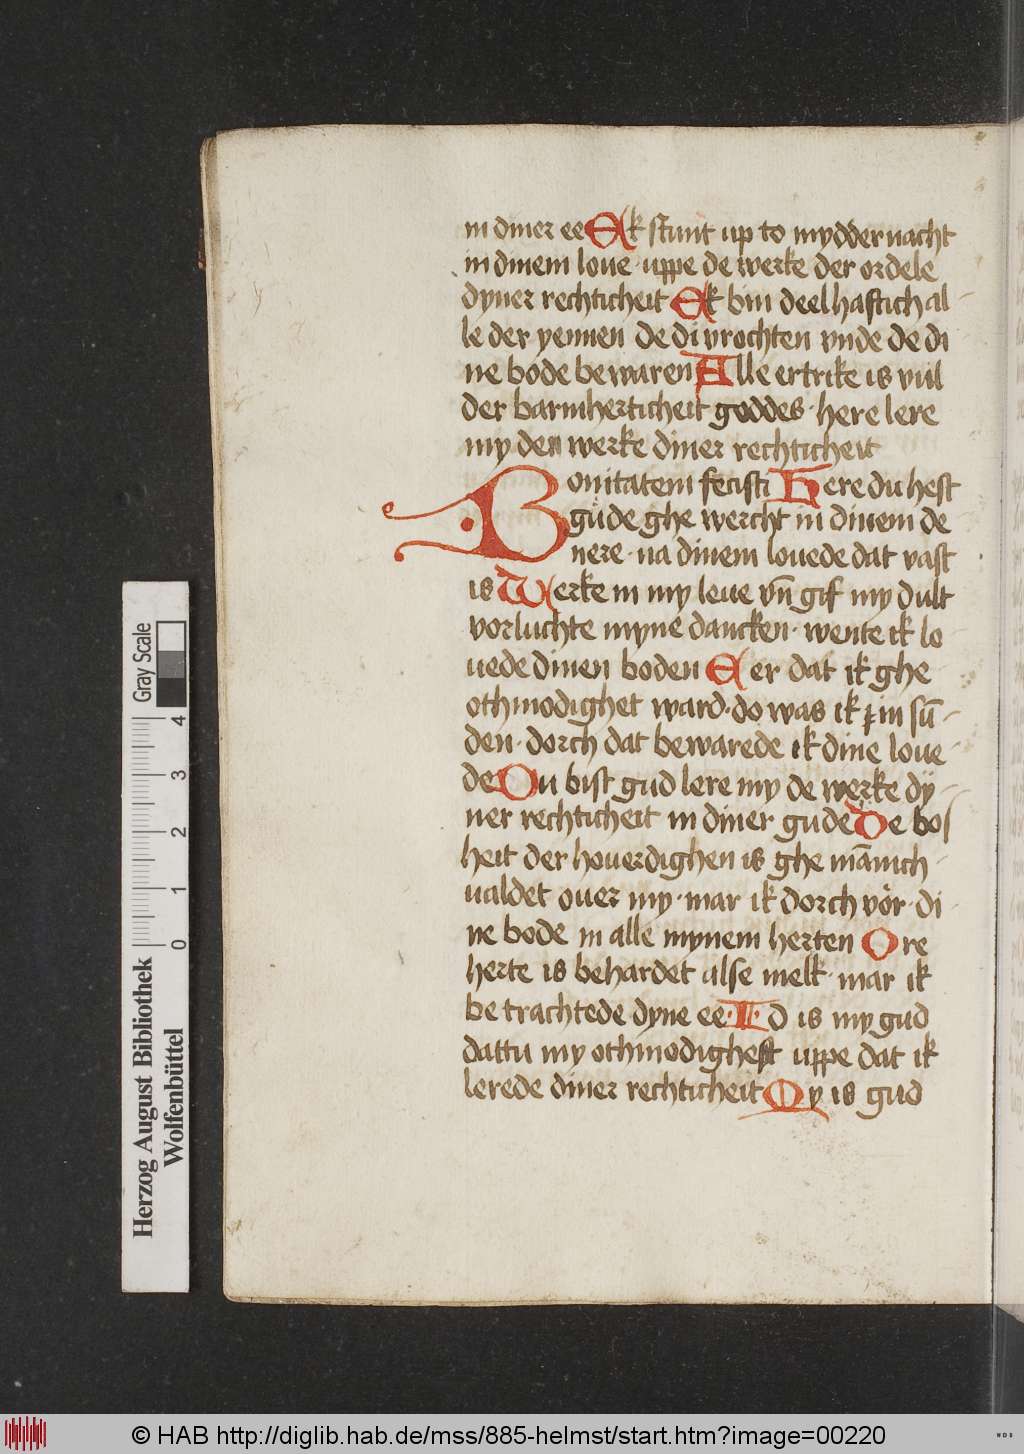 in diner ee Ek stunt up to myddernacht
in dinem loue · uppe de werke der ordele
dyner rechticheit Ek bin deelhaftich al-
le der yennen de di vrochten vnde de di
ne bode bewaren Alle ertrike is vul
der barmherticheit goddes · here lere
my den werke diner rechticheit
Bonitatem fecisti Here du hest
gude ghe wercht in dinem de
nere · na dinem louede dat vast
is Werke in my leue vn̄ gif my dult
vorluchte myne dancken · wente ik lo
uede dinen boden Eer dat ik ghe
othmodighet ward · do was ik in sū-
den · dorch dat bewarede ik dine loue-
de Du bist gud lere my de werke dÿ-
ner rechticheit in diner gude De bos
heit der houerdighen is ghe mānich-
ualdet ouer my · mar ik dorch vör · di-
ne bode in alle mynem herten Ore
herte is behardet alse melk · mar ik
be trachtede dyne ee · Id is my gud
dattu my othmodighest uppe dat ik
lerede diner rechticheit My is gud
Gray Scale
4 3 2 1 0
Herzog August Bibliothek
Wolfenbüttel
© HAB http://diglib.hab.de/mss/885-helmst/start.htm?image=00220